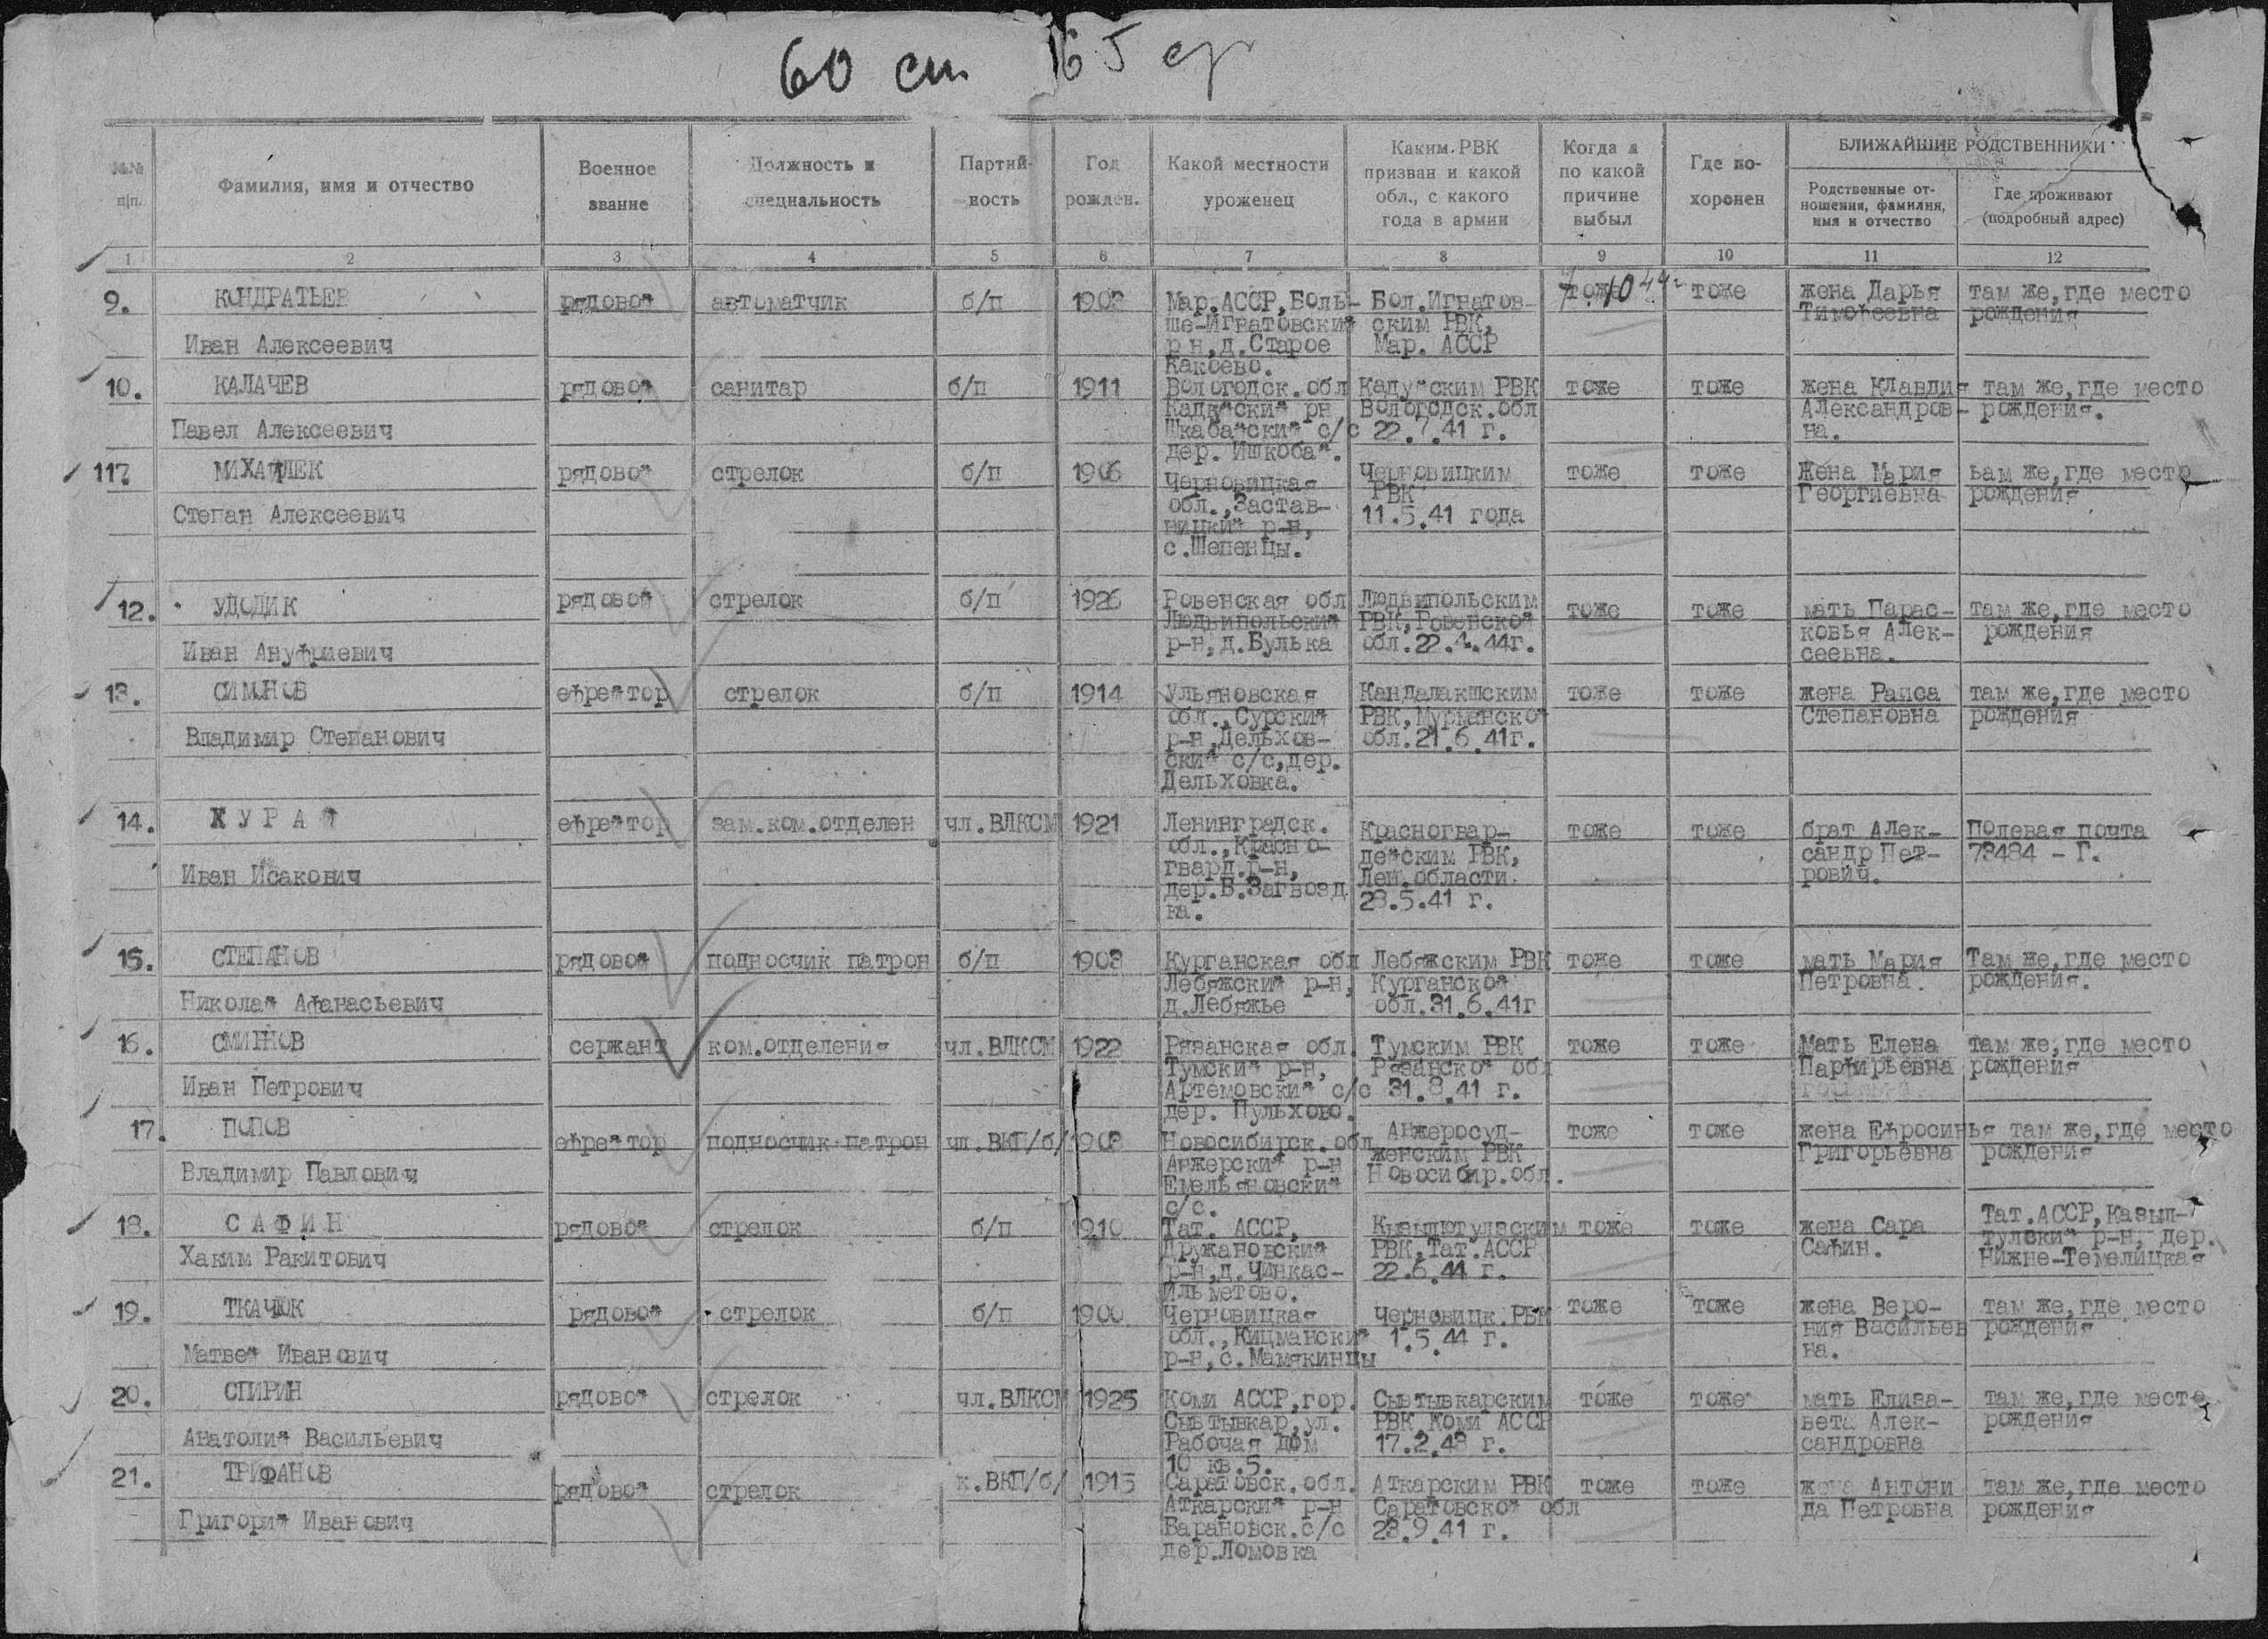 60 сп 65 ср
№№ п|п.
Фамилия, имя и отчество
Военное звание
Должность и специальность
Партий-ность
Год рожден.
Какой местности уроженец
Каким РВК призван и какой обл., с какого года в армии
Когда и по какой причине выбыл
Где по-хоронен
БЛИЖАЙШИЕ РОДСТВЕННИКИ
Родственные от-ношения, фамилия, имя и отчество
Где проживают (подробный адрес)
1 2 3 4 5 6 7 8 9 10 11 12
9. КОНДРАТЬЕВ рядовой автоматчик б/п 1902 Мар.АССР,Боль- Бол.Игнатов- тоже 7.10 44г тоже жена Дарья там же,где место
ше-Игнатовский ским РВК, Тимофеевна рождения
Иван Алексеевич р н,д.Старое Мар. АССР
Какоево.
10. КАЛАЧЕВ рядовой санитар б/п 1911 Вологодск.обл Кадуйским РВК тоже тоже жена Клавдия там же,где место
Кадуйский рн Вологодск.обл Александров- рождения.
Павел Алексеевич Шкабайский с/с 22.7.41 г. на.
дер. Ишкобай.
11. МИХАЙЛЕК рядовой стрелок б/п 1906 Черновицкая Черновицким тоже тоже Жена Мария ьам же,где место
обл.,Застав- РВК Георгиевна рождения
Степан Алексеевич ницкий р-н, 11.5.41 года
с.Шепенцы.
12. УДОДИК рядовой стрелок б/п 1926 Ровенская обл Людвипольским тоже тоже мать Парас- там же,где место
Людвипольский РВК,Ровенской ковья Алек- рождения
Иван Ануфриевич р-н,д.Булька обл.22.4.44г. сеевна.
13. СИМОНОВ ефрейтор стрелок б/п 1914 Ульяновская Кандалакшским тоже тоже жена Раиса там же,где место
обл.,Сурский РВК,Мурманской Степановна рождения
Владимир Степанович р-н,Дельхов- обл.21.6.41г.
ский с/с,дер.
Дельховка.
14. ХУРАЙ ефрейтор зам.ком.отделен чл.ВЛКСМ 1921 Ленинградск. Красногвар- тоже тоже брат Алек- Полевая почта
обл.,Красно- дейским РВК, сандр Пет- 73484 - Г.
Иван Исакович гвард.р-н, Лен.области рович.
дер.Б.Загвозд 28.5.41 г.
ка.
15. СТЕПАНОВ рядовой подносчик патрон б/п 1908 Курганская обл Лебяжским РВК тоже тоже мать Мария Там же,где место
Лебяжский р-н, Курганской Петровна. рождения.
Николай Афанасьевич д.Лебяжье обл.31.6.41г
16. СМИРНОВ сержант ком.отделения чл.ВЛКСМ 1922 Рязанская обл. Тумским РВК тоже тоже Мать Елена там же,где место
Тумский р-н, Рязанской обл Парфирьевна рождения
Иван Петрович Артемовский с/с 31.8.41 г.
дер. Пульхово.
17. ПОПОВ ефрейтор подносчик патрон чл.ВКП/б/ 1908 Новосибирск.обл Анжеросуд- тоже тоже жена Ефросинья там же,где место
Анжерский р-н женским РВК Григорьевна рождения
Владимир Павлович Емельяновский Новосибир.обл.
с/с.
18. САФИН рядовой стрелок б/п 1910 Тат. АССР, Кызылютулзским тоже тоже жена Сара Тат.АССР,Казыл-
Дружановский РВК,Тат.АССР Сафин. тулский р-н, дер.
Хаким Ракитович р-н,д.Чинкас- 22.6.44 г. Нижне-Темелицкая
Ильметово.
19. ТКАЧЮК рядовой стрелок б/п 1900 Черновицкая Черновицк.РВК тоже тоже жена Веро- там же,где место
обл.,Кицманский 1.5.44 г. ния Васильев рождения
Матвей Иванович р-н,с.Мамякинцы на.
20. СПИРИН рядовой стрелок чл.ВЛКСМ 1925 Коми АССР,гор. Сывтывкарским тоже тоже мать Елиза- там же,где место
Сывтывкар,ул. РВК,Коми АССР вета Алек- рождения
Анатолий Васильевич Рабочая дом 17.2.43 г. сандровна
10 кв.5.
21. ТРИФАНОВ рядовой стрелок к.ВКП/б/ 1915 Саратовск.обл. Аткарским РВК тоже тоже жена Антони там же,где место
Аткарский р-н Саратовской обл да Петровна рождения
Григорий Иванович Барановск.с/с 23.9.41 г.
дер.Ломовка